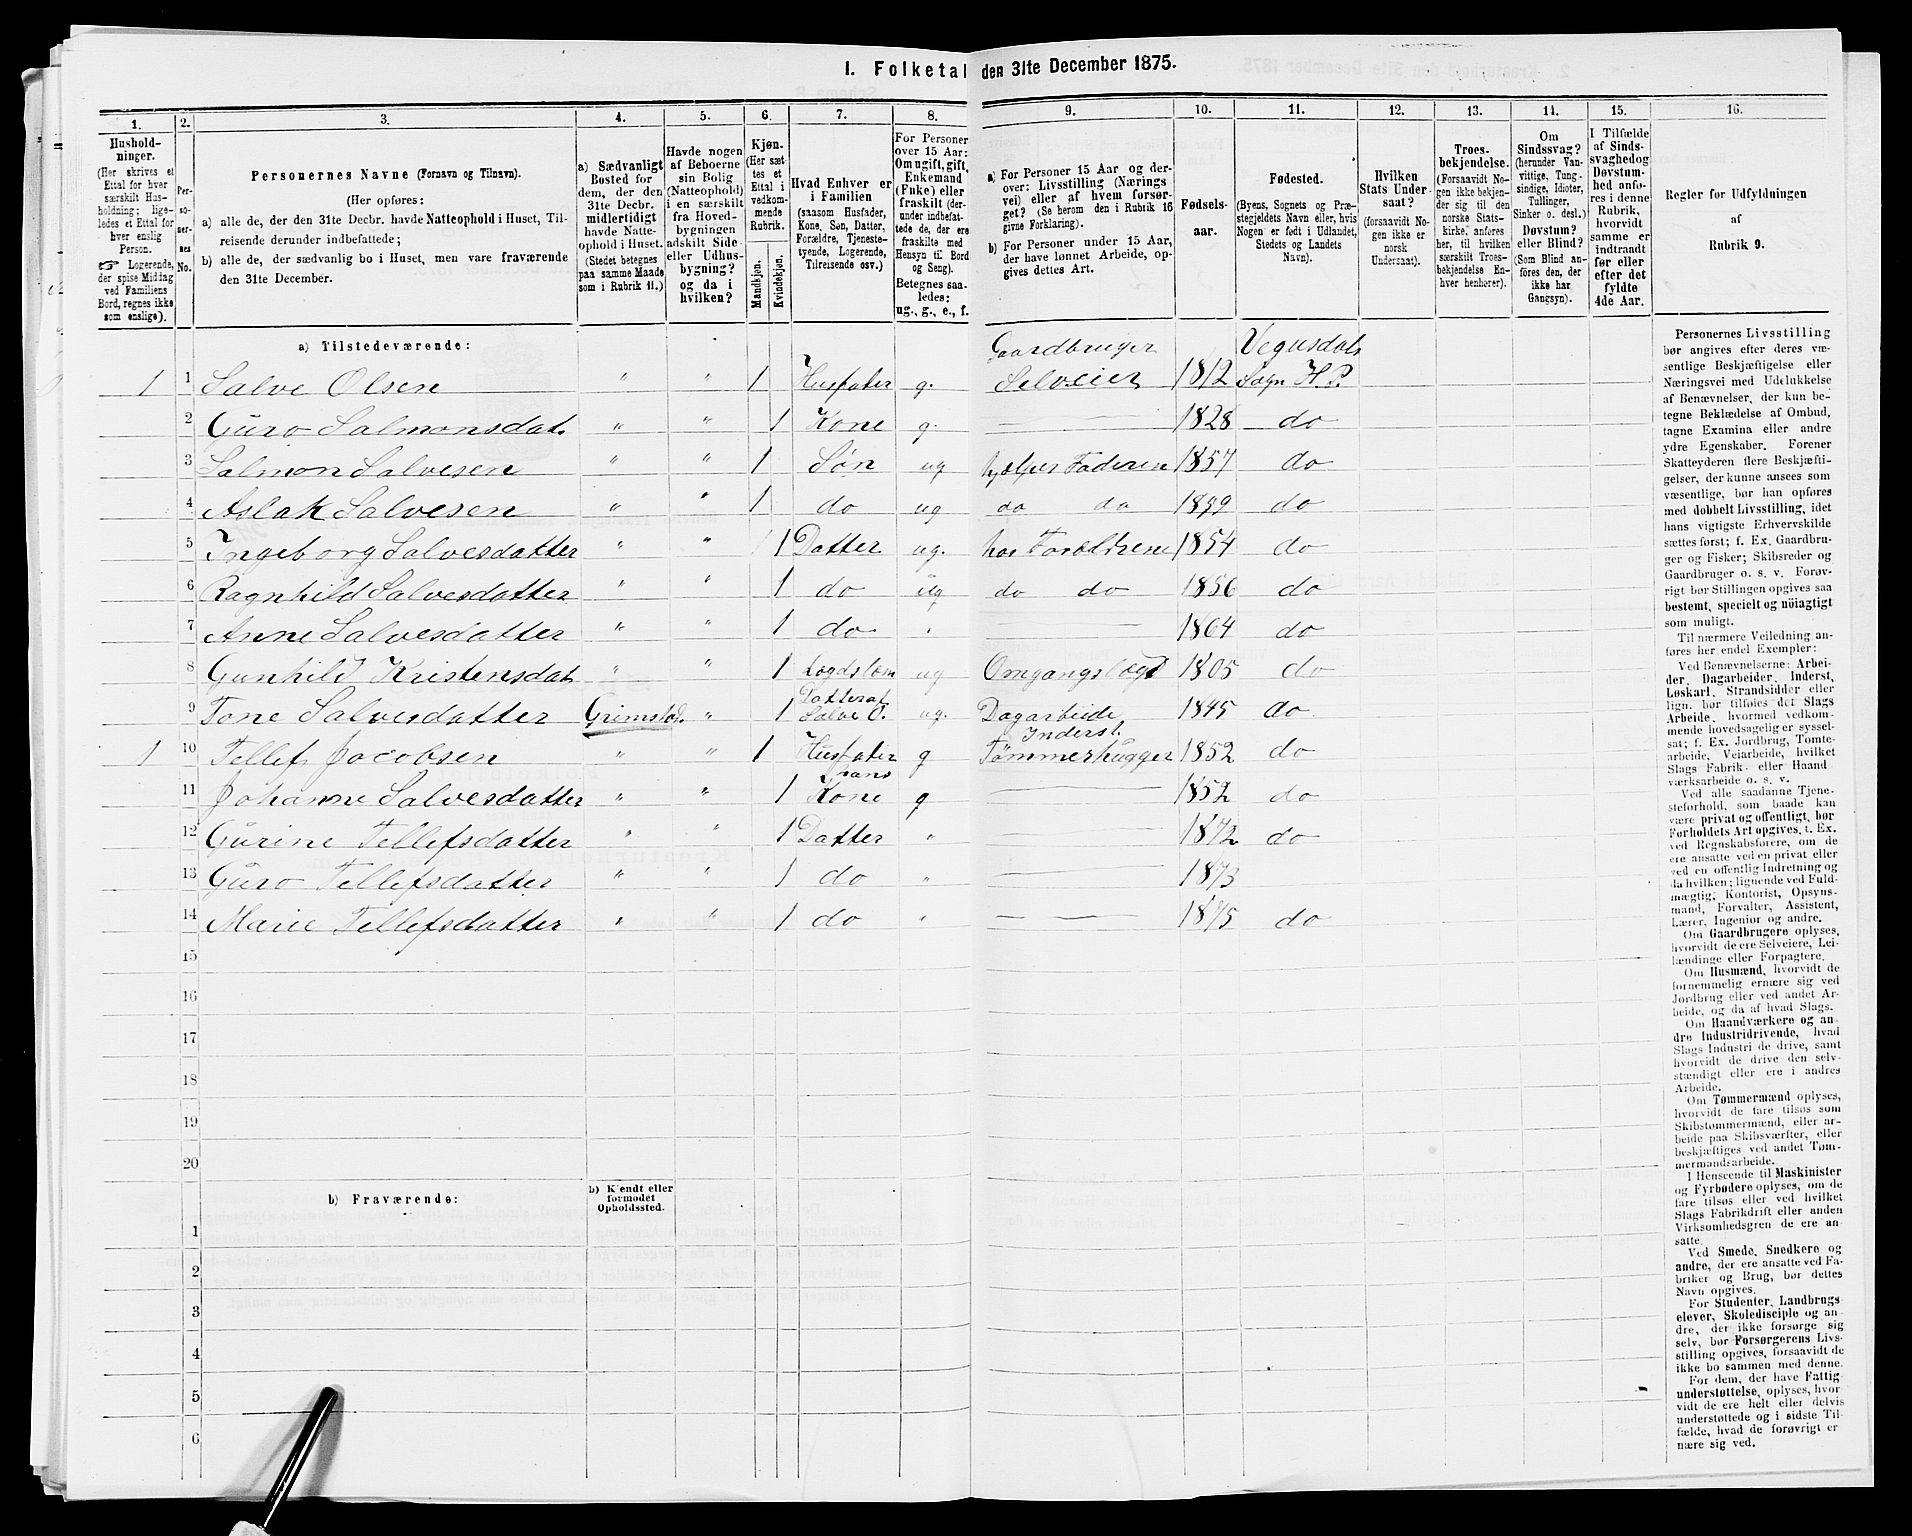 I. Folketal den 31te December 1875.
1. 2. 3. 4. 5. 6. 7. 8. 9. 10. 11. 12. 13. 14. 15. 16.
Husholdninger.
(Her skrives et
Ettal for hver
særskilt Husholdning; ligeledes et Ettal for
hver enslig
Person.
☞ Logerende,
der spise Middag
ved Familiens
Bord, regnes ikke
som enslige).
Personernes
No.
Personernes Navne (Fornavn og Tilnavn).
(Her opføres:
a) alle de, der den 31te Decbr. havde Natteophold i Huset, Tilreisende derunder indbefattede;
b) alle de, der sædvanlig bo i Huset, men vare fraværende
den 31te December.
a) Sædvanligt
Bosted for
dem, der den
31te Decbr.
midlertidigt
havde Natteophold i Huset.
(Stedet betegnes
paa samme Maade
som i Rubrik 11.)
Havde nogen
af Beboerne
sin Bolig
(Natteophold)
i en særskilt
fra Hovedbygningen
adskilt Side-
eller Udhusbygning?
og da i
hvilken?
Kjøn.
(Her sættes et
Ettal i
vedkommende
Rubrik.
Mandkjøn.
Kvindekjøn.
Hvad Enhver er
i Familien
(saasom Husfader,
Kone, Søn, Datter,
Forældre, Tjenestetyende, Logerende,
Tilreisende osv.)
For Personer
over 15 Aar:
Om ugift, gift,
Enkemand
(Enke) eller
fraskilt (derunder indbefattede de, der ere
fraskilte med
Hensyn til Bord
og Seng).
Betegnes saaledes:
ug., g., e., f.
a) For Personer 15 Aar og derover: Livsstilling (Næringsvei) eller af hvem forsørget? (Se herom den i Rubrik 16
givne Forklaring).
b) For Personer under 15 Aar,
der have lønnet Arbeide, opgives dettes Art.
Fødselsaar.
Fødested.
(Byens, Sognets og Præstegjeldets Navn eller, hvis
Nogen er født i Udlandet,
Stedets og Landets
Navn).
Hvilken
Stats Undersaat?
(forsaavidt Nogen ikke er
norsk
Undersaat).
Troesbekjendelse.
(Forsaavidt Nogen ikke bekjender sig til den
norske Statskirke, anføres
her, til hvilken
særskilt Troesbekjendelse Enhver henhører).
Om
Sindssvag?
(herunder Vanvittige, Tungsindige, Idioter,
Tullinger,
Sinker o. desl.)
Døvstum?
eller Blind?
(Som Blind anføres den, der
ikke har
Gangsyn).
I Tilfælde
af Sindssvaghed og
Døvstumhed anføres i denne
Rubrik,
hvorvidt
samme er
indtraadt
før eller
efter det
fyldte
4de Aar.
Regler for Udfyldningen
af
Rubrik 9.
a) Tilstedeværende:
Gaardbruger Vegusdals
1 1 Salve Olsen " " 1 Husfader g. Selveier 1812 Sogn H. P.
2 Guro Salmonsdat. " " 1 Kone g. — 1828 do
3 Salmon Salvesen " " 1 Søn ug hjelper Faderen 1857 do
4 Aslak Salvesen " " 1 do ug do do do
5 Ingeborg Salvesdatter " " 1 Datter ug. hos Forældrene 1854 do
6 Ragnhild Salvesdatter " " 1 do ug do do 1856 do
7 Anne Salvesdatter " " 1 do. " — 1864 do
8 Gunhild Kristensdat " " 1 Lægdslem ug Omgangslægd 1805 do
Datter af
9 Tone Salvesdatter Grimstad. " 1 Salve O. ug. Dagarbeide 1845 do
Inderst.
1 10 Tellef Jacobsen " " 1 Husfader g Tømmerhugger 1852 do
hans
11 Johanne Salvesdatter " " 1 Kone g — 1852 do
12 Gurine Tellefsdatter " " 1 Datter " — 1872 do
13 Guro Tellefsdatter " " 1 do " — 1873
14 Marie Tellefsdatter " " 1 do " — 1875 do
15
16
17
18
19
20
b) Fraværende:
b) Kjendt eller
formodet
Opholdssted.
1
2
3
4
5
6
Personernes Livsstilling
bør angives efter deres væsentlige Beskjæftigelse eller
Næringsvei med Udelukkelse
af Benævnelser, der kun betegne Beklædelse af Ombud,
tagne Examina eller andre
ydre Egenskaber. Forener
Skatteyderen flere Beskjæftigelser, der kunne ansees som
væsentlige, bør han opføres
med dobbelt Livsstilling, idet
hans vigtigste Erhvervskilde
sættes først; f. Ex. Gaardbruger og Fisker; Skibsreder og
Gaardbruger o. s. v. Forøvrigt bør Stillingen opgives saa
bestemt, specielt og nöiagtigt
som muligt.
Til nærmere Veiledning anføres her endel Exempler:
Ved Benævnelserne: Arbeider, Dagarbeider, Inderst,
Løskarl, Strandsidder eller
lign. bør tilføies det Slags
Arbeide, hvormed vedkommende hovedsagelig er sysselsat; f. Ex. Jordbrug, Tomtearbeide, Veiarbeide, hvilket
Slags Fabrik- eller Haandværksarbeide o. s. v.
Ved alle saadanne Tjenesteforhold, som baade kan
være privat og offentligt, bør
Forholdets Art opgives, t. Ex.
ved Regnskabsførere, om de
ere ansatte ved en privat eller
ved en offentlig Indretning og
da hvilken; lignende ved Fuldmægtig, Kontorist, Opsynsmand, Forvalter, Assistent,
Lærer, Ingeniør og andre.
Om Gaardbrugere oplyses,
hvorvidt de ere Selveiere, Leilændinge eller Forpagtere.
Om Husmænd, hvorvidt de
fornemmelig ernære sig ved
Jordbrug eller ved andet Arbeide, og da af hvad Slags.
Om Haandværkere og andre Industridrivende, hvad
Slags Industri de drive, samt
hvorvidt de drive den selvstændigt eller ere i andres
Arbeide.
Om Tømmermænd oplyses,
hvorvidt de fare tilsøs som
Skibstømmermænd, eller arbeide paa Skibsværfter, eller
beskjæftiges ved andet Tømmermandsarbeide.
I Henseende til Maskinister
og Fyrbødere oplyses, om de
fare tilsøs eller ved hvilket
Slags Fabrikdrift eller anden
Virksomhedsgren de ere ansatte.
Ved Smede, Snedkere og
andre, der ere ansatte ved Fabriker og Brug, bør dettes
Navn opgives.
For Studenter, Landbrugselever, Skoledisciple og andre, der ikke forsørge sig
selv, bør Forsørgerens Livsstilling opgives, forsaavidt de
ikke bo sammen med denne.
For dem, der have Fattigunderstøttelse, oplyses, hvorvidt de ere helt eller delvis
understøttede og i sidste Tilfælde, hvad de forøvrigt ernære sig ved.